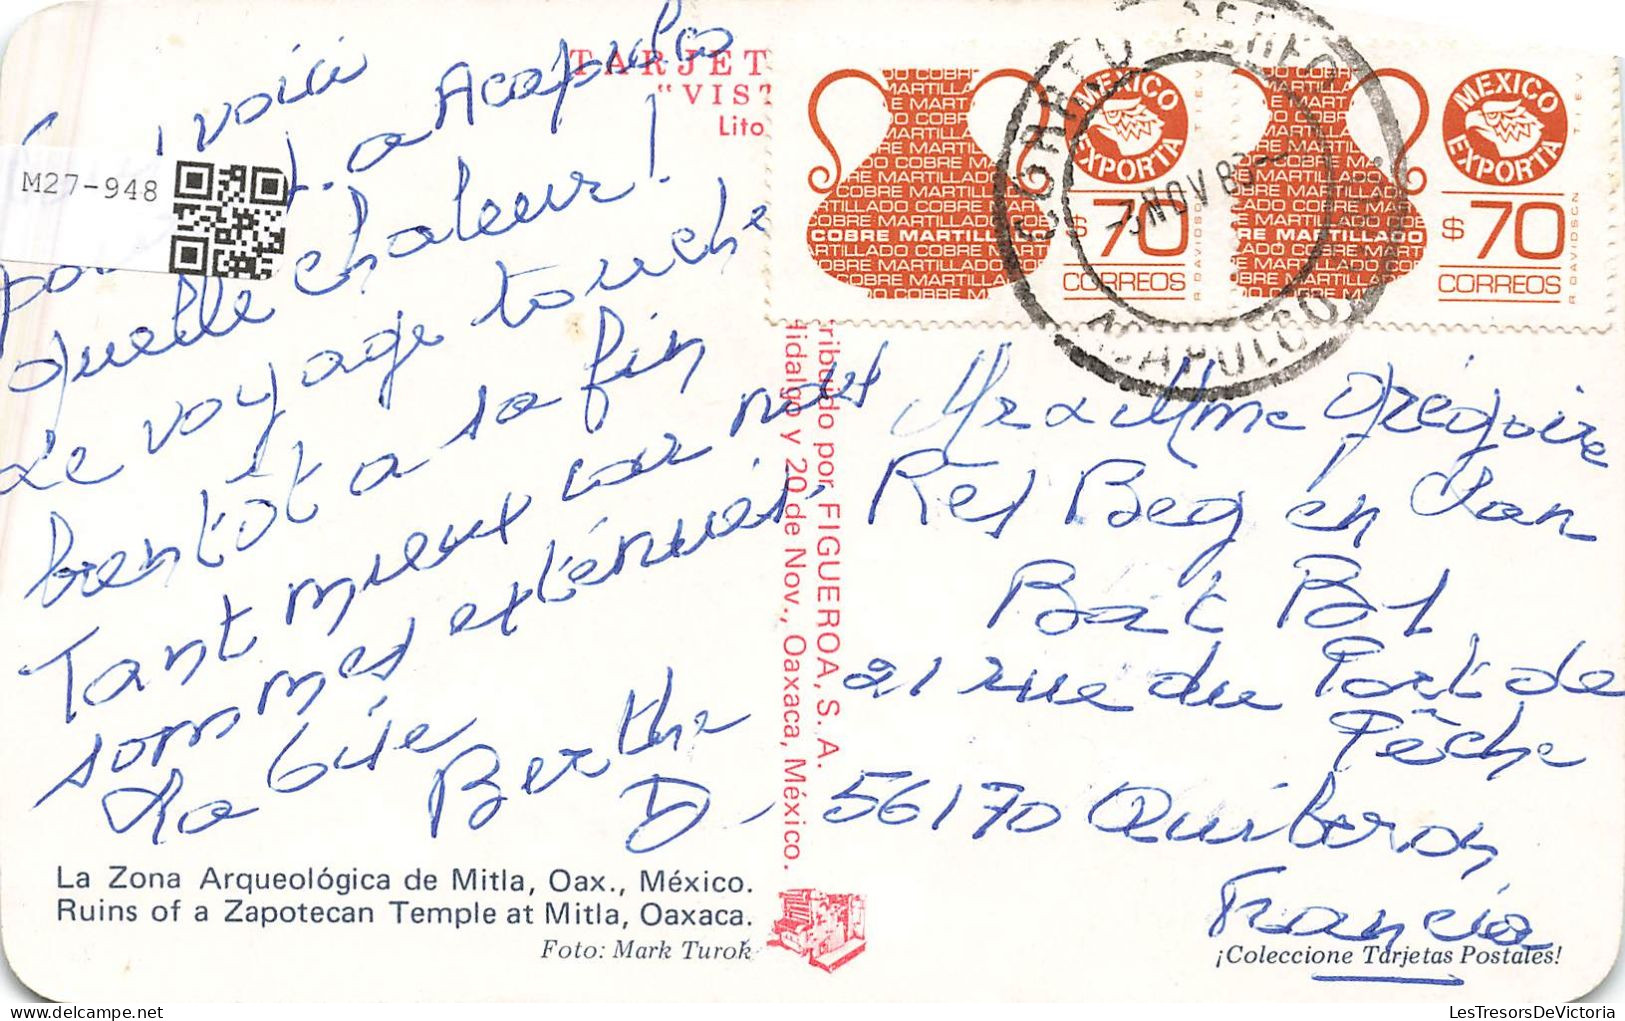 TARJET
"VIST
Lito
M27-948
voici
a Acapulco
quelle chaleur!
Le voyage touche
bientôt a sa fin
Tant mieux car nous
sommes exténués
La bise
Berthe
D.
La Zona Arqueológica de Mitla, Oax., México.
Ruins of a Zapotecan Temple at Mitla, Oaxaca.
Foto: Mark Turok
ribuido por FIGUEROA, S. A.
Hidalgo y 20 de Nov., Oaxaca, México.
COBRE MARTILLADO
MEXICO EXPORTA
$70
CORREOS
R. DAVIDSON
T.I.E.V
COBRE MARTILLADO
MEXICO EXPORTA
$70
CORREOS
R. DAVIDSCN
T.I.E.V
CORREO AEREO
NOV 83
ACAPULCO
Mr & Mme Grégoire
Res Beg en Lan
Bat B
21 rue du Port de
Pêche
56170 Quiberon
Francia
¡Coleccione Tarjetas Postales!
LesTresorsDeVictoria